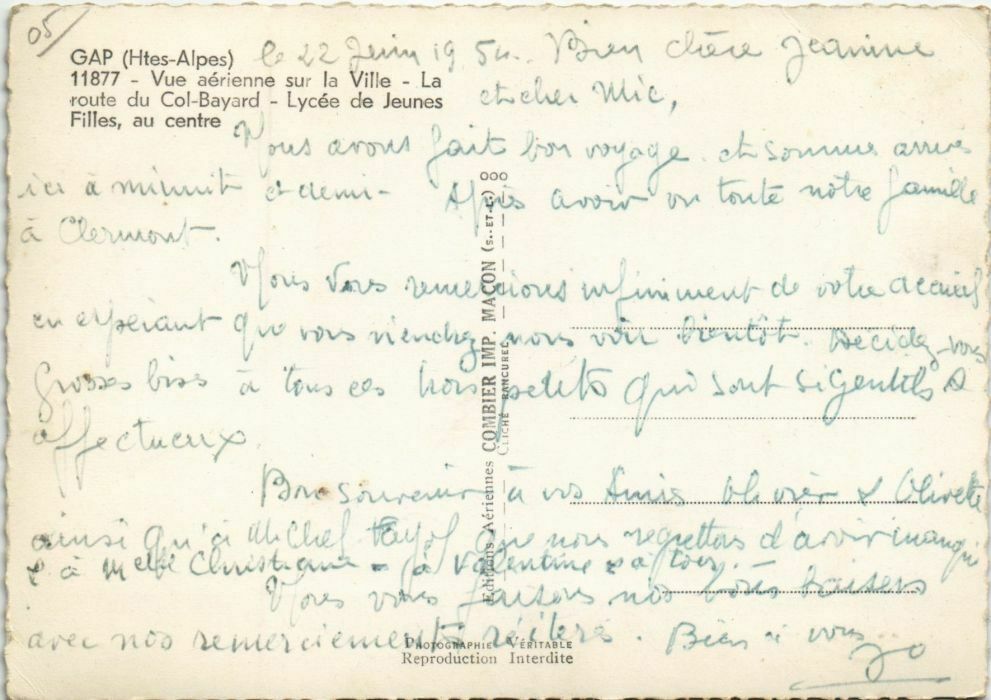 05
GAP (Htes-Alpes)
11877 - Vue aérienne sur la Ville - La
route du Col-Bayard - Lycée de Jeunes
Filles, au centre
le 22 Juin 1954. Bien chère Jeanine
et cher Mic,
Nous avons fait bon voyage et sommes arrivés
ici à minuit et demi - Après avoir vu toute notre famille
à Clermont.
Nous vous remercions infiniment de votre accueil
en espérant que vous viendrez nous voir bientôt. Décidez-vous
Grosses bises à tous ces trois petits qui sont si gentils &
affectueux.
Bon souvenir à vos Amis Olivier & Olivette
ainsi qu'à Michel que nous regrettons d'avoir manqué
& à Melle Christiane - à Valentine & à
Nous vous faisons nos bons baisers
avec nos remerciements réitérés. Bien à vous
Jo
Editions Aériennes COMBIER IMP. MACON (S.-ET-L.)
CLICHÉ RANCUREL
PHOTOGRAPHIE VÉRITABLE
Reproduction Interdite